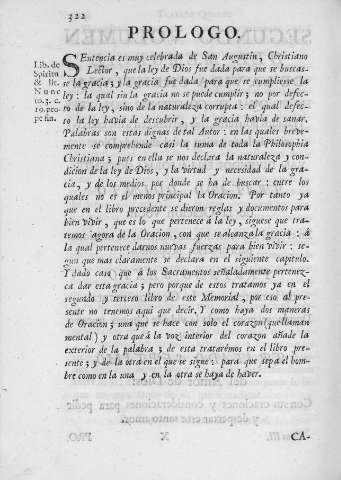 322
PROLOGO.
Lib. de
Spiritu
& lit.
Nunc
to. 3. c.
10. pro-
pe fin.
SEntencia es muy celebrada de San Augustin, Christiano
Lector, que la ley de Dios fue dada para que se buscas-
se la gracia; y la gracia fue dada para que se cumpliesse la
ley: la qual sin la gracia no se puede cumplir; no por defec-
to de la ley, sino de la naturaleza corrupta: el qual defec-
to la ley havia de descubrir, y la gracia havia de sanar.
Palabras son estas dignas de tal Autor: en las quales breve-
mente se comprehende casi la suma de toda la Philosophia
Christiana; pues en ella se nos declara la naturaleza y con-
dicion de la ley de Dios, y la virtud y necesidad de la gra-
cia, y de los medios por donde se ha de buscar: entre los
quales no es el menos principal la Oracion. Por tanto ya
que en el libro precedente se dieron reglas y documentos para
bien vivir, que es lo que pertenece à la ley, siguese que tra-
temos agora de la Oracion, con que se alcanza la gracia: à
la qual pertenece darnos nuevas fuerzas para bien vivir: se-
gun que mas claramente se declara en el siguiente capitulo.
Y dado caso que à los Sacramentos señaladamente pertenez-
ca dar esta gracia; pero porque de estos tratamos ya en el
segundo y tercero libro de este Memorial, por eso al pre-
sente no tenemos aqui que decir. Y como haya dos maneras
de Oracion; una que se hace con solo el corazon (que llaman
mental) y otra que à la voz interior del corazon añade la
exterior de la palabra; de esta trataremos en el libro pre-
sente; y de la otra en el que se sigue: para que sepa el hom-
bre como en la una y en la otra se haya de haver.
CA-